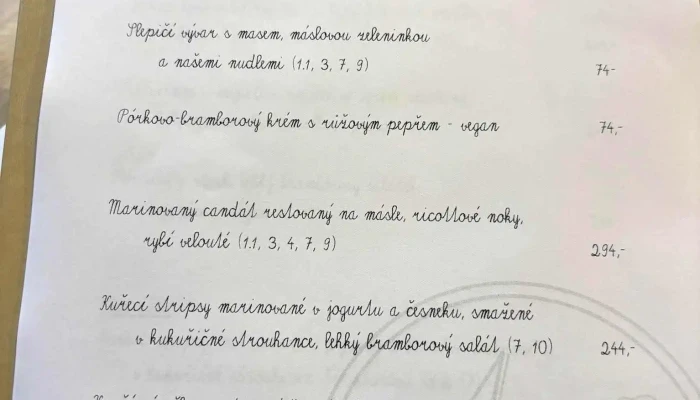 Slepičí vývar s masem, máslovou zeleninkou
a našemi nudlemi (1.1, 3, 7, 9) 74-
Pórkovo-bramborový krém s růžovým pepřem - vegan 74,-
Marinovaný candát restovaný na másle, ricottové noky,
rybí velouté (1.1, 3, 4, 7, 9) 294,-
Kuřecí stripsy marinované v jogurtu a česneku, smažené
v kukuřičné strouhance, lehký bramborový salát (7, 10) 244,-